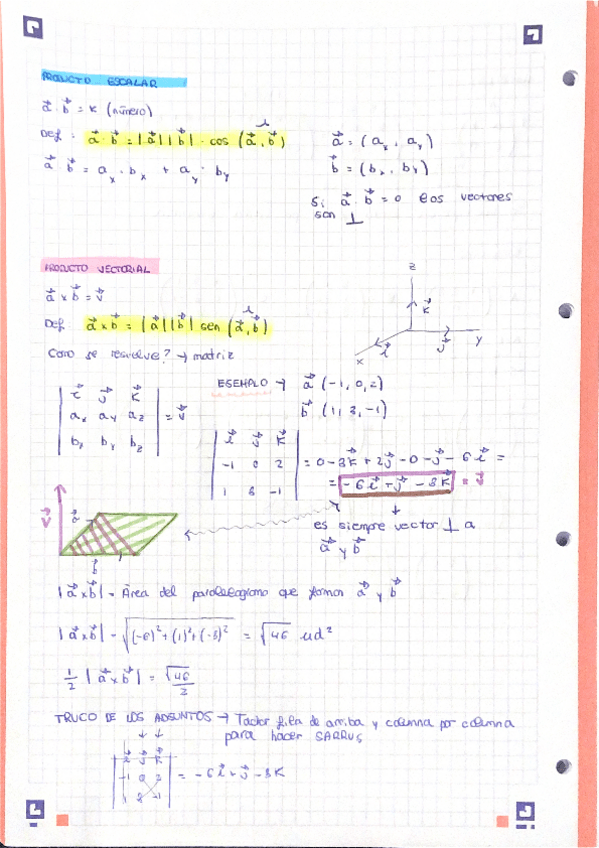 PRODUCTO ESCALAR
a⃗ · b⃗ = K (número)
Def: a⃗ · b⃗ = |a⃗| |b⃗| · cos (a⃗, b⃗)
a⃗ = (ax, ay)
a⃗ · b⃗ = ax · bx + ay · by
b⃗ = (bx, by)
Si a⃗ · b⃗ = 0 los vectores
son ⊥
PRODUCTO VECTORIAL
a⃗ x b⃗ = v⃗
Def: a⃗ x b⃗ = |a⃗| |b⃗| sen (a⃗, b⃗)
z
k⃗
y
j⃗
x
i⃗
Como se resuelve? → matriz
| i⃗ j⃗ k⃗ |
| ax ay az | = v⃗
| bx by bz |
EJEMPLO → a⃗ (-1, 0, 2)
b⃗ (1, 3, -1)
| i⃗ j⃗ k⃗ |
| -1 0 2 | = 0 - 3k⃗ + 2j⃗ - 0 - j⃗ - 6i⃗ =
| 1 3 -1 | = -6i⃗ + j⃗ - 3k⃗ = v⃗
es siempre vector ⊥ a
a⃗ y b⃗
v⃗
a⃗
b⃗
|a⃗ x b⃗| = Área del paralelogramo que forman a⃗ y b⃗
|a⃗ x b⃗| = √(-6)² + (1)² + (-3)² = √46 ud²
1/2 |a⃗ x b⃗| = √46/2
TRUCO DE LOS ADJUNTOS → Tachar fila de arriba y columna por columna
para hacer SARRUS
| i⃗ j⃗ k⃗ |
| -1 0 2 | = -6i⃗ + j⃗ - 3k
| 1 3 -1 |